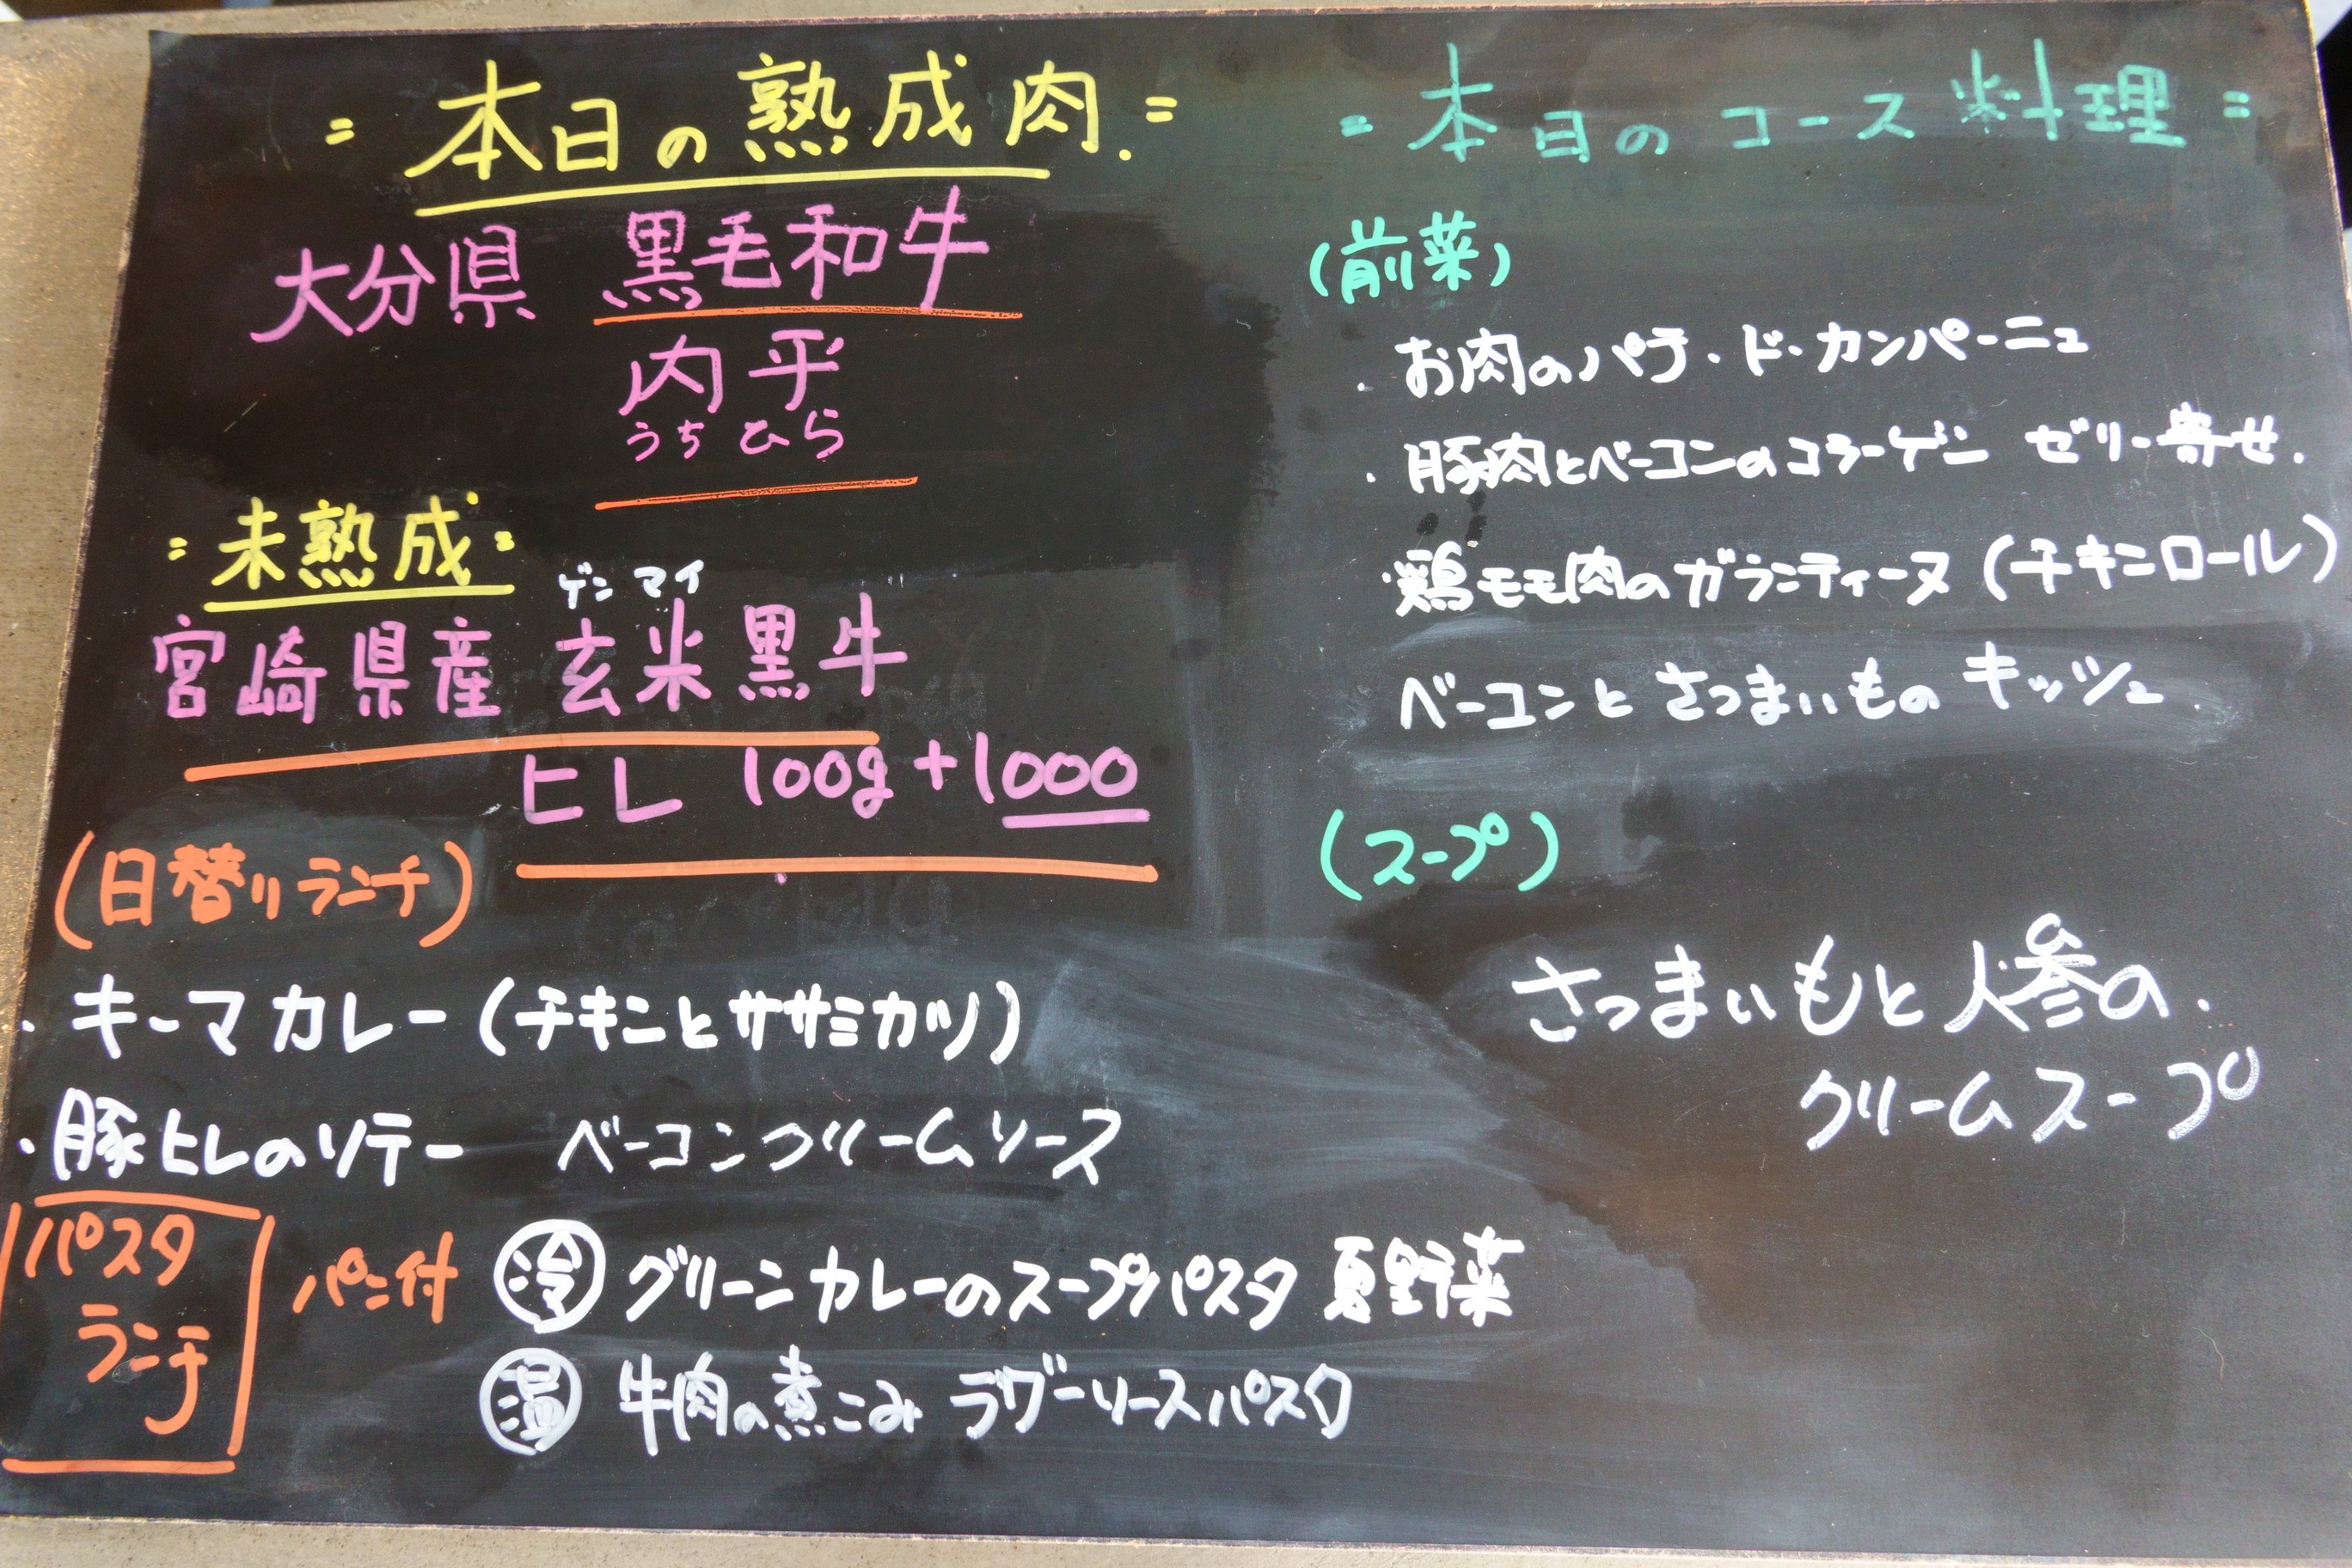 = 本日の熟成肉. =
大分県 黒毛和牛
内平
うちひら
= 未熟成 =
ゲンマイ
宮崎県産 玄米黒牛
ヒレ 100g+1000
(日替りランチ)
・キーマカレー(チキンとササミカツ)
・豚ヒレのソテー ベーコンクリームソース
パスタ
ランチ
パン付
冷 グリーンカレーのスープパスタ 夏野菜
温 牛肉の煮こみ ラグーソースパスタ
= 本日のコース料理 =
(前菜)
・お肉のパテ・ド・カンパーニュ
・豚肉とベーコンのコラーゲン ゼリー寄せ.
・鶏モモ肉のガランティーヌ(チキンロール)
ベーコンとさつまいものキッシュ.
(スープ)
さつまいもと人参の.
クリームスープ